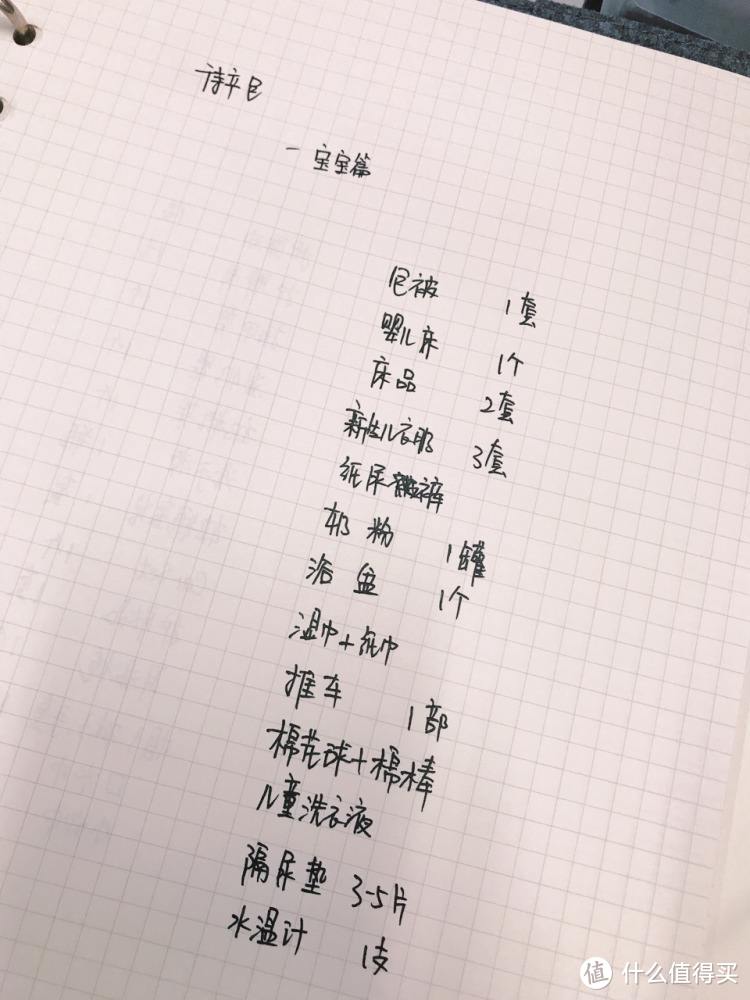 待产包
一 宝宝篇
包被 1套
婴儿床 1个
床品 2套
新生儿衣服 3套
纸尿裤
奶粉 1罐
浴盆 1个
湿巾+纸巾
推车 1部
棉花球+棉棒
儿童洗衣液
隔尿垫 3-5片
水温计 1支
值 什么值得买